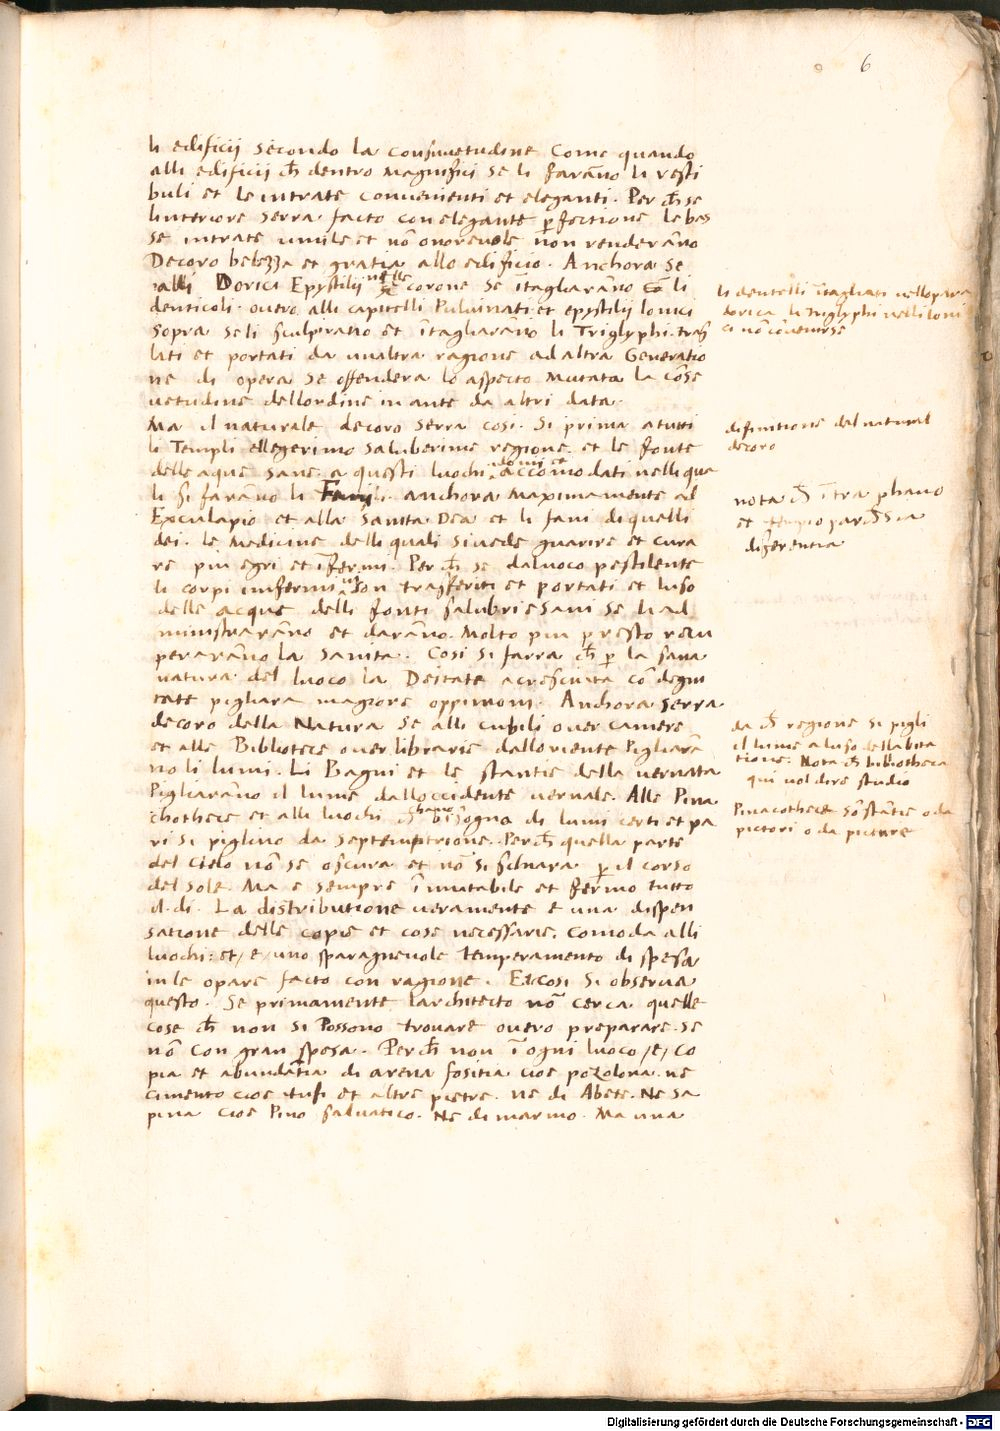 6
li edificii secondo la consuuetudine Come quando
alli edificii ch̄ dentro Magnifici se li farāno li vesti
buli et le intrate convenienti et eleganti. Per ch̄ se
linteriore serra facto con elegante p̄fectione le bas
se intrate umile et nō onorevole non renderāno
Decoro belezza et gratia allo edificio. Anchora se
alli Dorici Epystilij nelle corone se ītagliarāno li
denticoli. overo alli capitelli Pulvinati et epystilij Ionici
sopra seli sculpirāno et ītagliarāno li Triglyphi. tras
lati et portati da unaltra ragione ad altra Generatio
ne di opera se offendera lo aspecto Mutata la cōse
uetudine dellordine in ante da altri data.
Ma il naturale decoro serra cosi. Si prima atutti
li Templi ellegerimo saluberime regione. et le fonte
delle aque sane. a questi luochi accomodati nelli qua
li si farāno li Fani. Anchora Maximamente ad
Exculapio et alla Sanita Dea et li fani di quelli
dei. le Medicine delli quali si vede guarire et cura
re piu egri et īfermi. Per ch̄ se daluoco pestilente
li corpi infermi son trasferiti et portati et luso
delle acque delli fonti salubri e sani se li ad
ministrarāno et darāno. Molto piu presto recu
perarāno la sanita. Cosi si farra ch̄ p̄ la sana
natura del luoco la Deitate acresciuta cō degni
tate pigliara magiore oppinioni. Anchora serra
decoro della Natura se alli cubili over camere
et alle Bibliotece over librarie dalloriente Pigliarā
no li lumi. Li Bagni et le stantie della vernata
Pigliarāno il lume dalloccidente vernale. Alle Pina
chothece et alli luochi ch̄ hano bisogno di lumi certi et pa
ri si piglino da septemptrione. Per ch̄ quella parte
del cielo nō se oscura et nō si schiara p̄ il corso
del sole. Ma e sempre īmutabile et fermo tutto
il di. La distributione veramente e una dispen
satione delle copie et cose necessarie. comoda alli
luochi: et, e, uno sparagnevole temperamento di spesa
in le opare facto con ragione. Et cosi si observa
questo. Se primamente larchitecto nō cerca quelle
cose ch̄ non si Possono trovare overo preparare. se
nō con gran spesa. Per ch̄ non ī ogni luoco, e, co
pia et abundātia di arena fositia cioe pozolona. ne
cimento cioe tufi et altre pietre. ne di Abete. Ne sa
pina cioe Pino salvatico. Ne di marmo. Ma una
li dentelli ītagliati nellopara
dorica li triglyphi nelli Ioni
ci nō cōvenirse
difinitione del natural
decoro
nota ch̄ ītra phano
et tempio par ch̄ sia
diferentia
da ch̄ regione si pigli
il lume a luso dellabita
tione. Nota ch̄ bibliotheca
qui vol dire studio
Pinacothece sō stātie o da
pictori o da picture
Digitalisierung gefördert durch die Deutsche Forschungsgemeinschaft - DFG